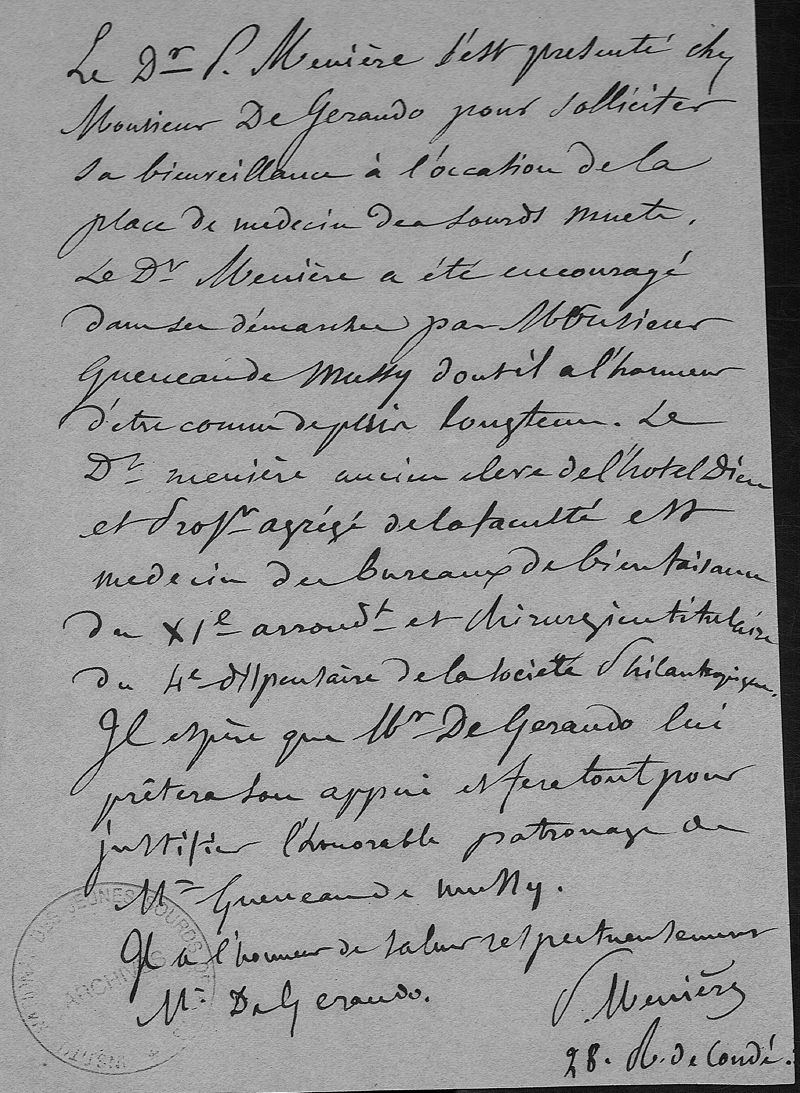 Le Dr P. Menière s'est presenté chez
Monsieur De Gerando pour solliciter
sa bienveillance à l'occation de la
place de medecin des sourds muets.
Le Dr Menière a été encouragé
dans ses démarches par Monsieur
Gueneau de Mussy dont il a l'honneur
d'etre connu depuis longtems. Le
Dr menière ancien eleve de l'hotel Dieu
et Profr agrégé de la faculté est
medecin du bureaux de bienfaisance
du XIe arrondt et chirurgien titulaire
du 4e dispensaire de la société Philantropique.
Il espère que Mr De Gerando lui
prêtera son appui et fera tout pour
justifier l'honorable patronage de
Mr Gueneau de mussy.
Il a l'honneur de saluer respectueusement
Mr De Gerando.
P. Menière
28. R. de Condé.
INSTITUT NATIONAL DES JEUNES SOURDS DE
ARCHIVES